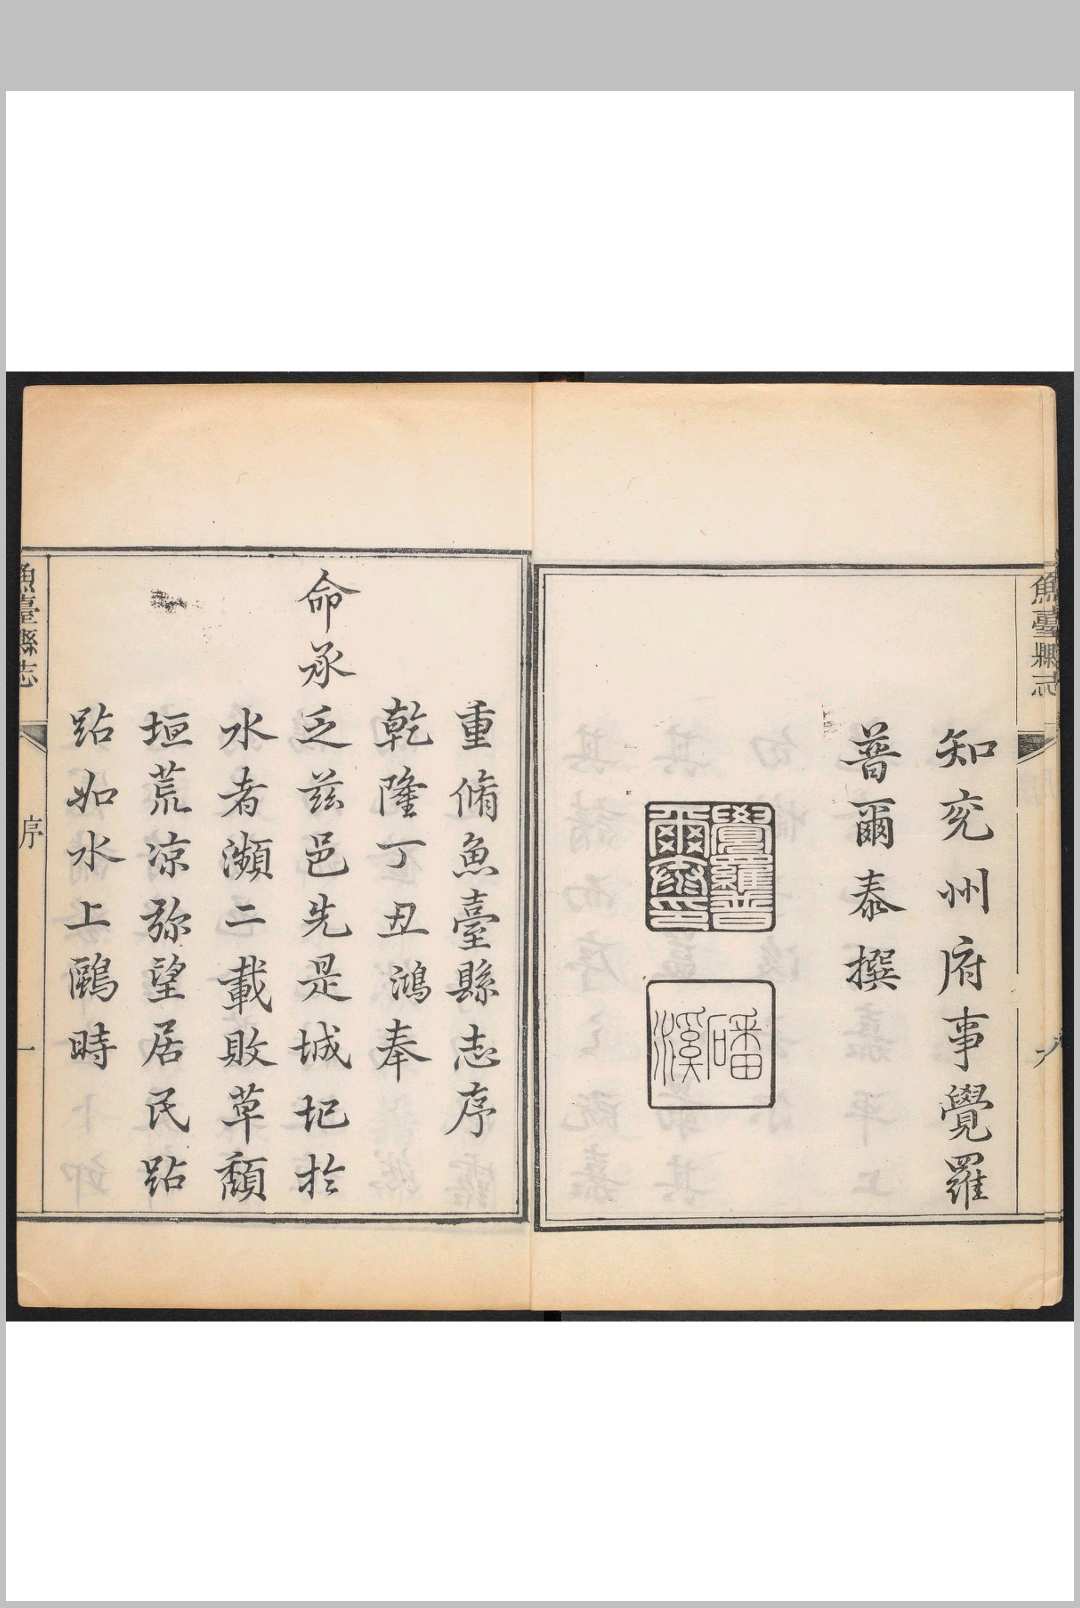 魚臺縣志
知兖州府事覺羅
普爾泰撰
覺羅普
爾泰印
磻
溪
重脩魚臺縣志序
乾隆丁丑鴻奉
命承乏兹邑先是城圮於
水者瀕二載敗草頹
垣荒凉弥望居民跕
跕如水上鷗時
魚臺縣志
序
一